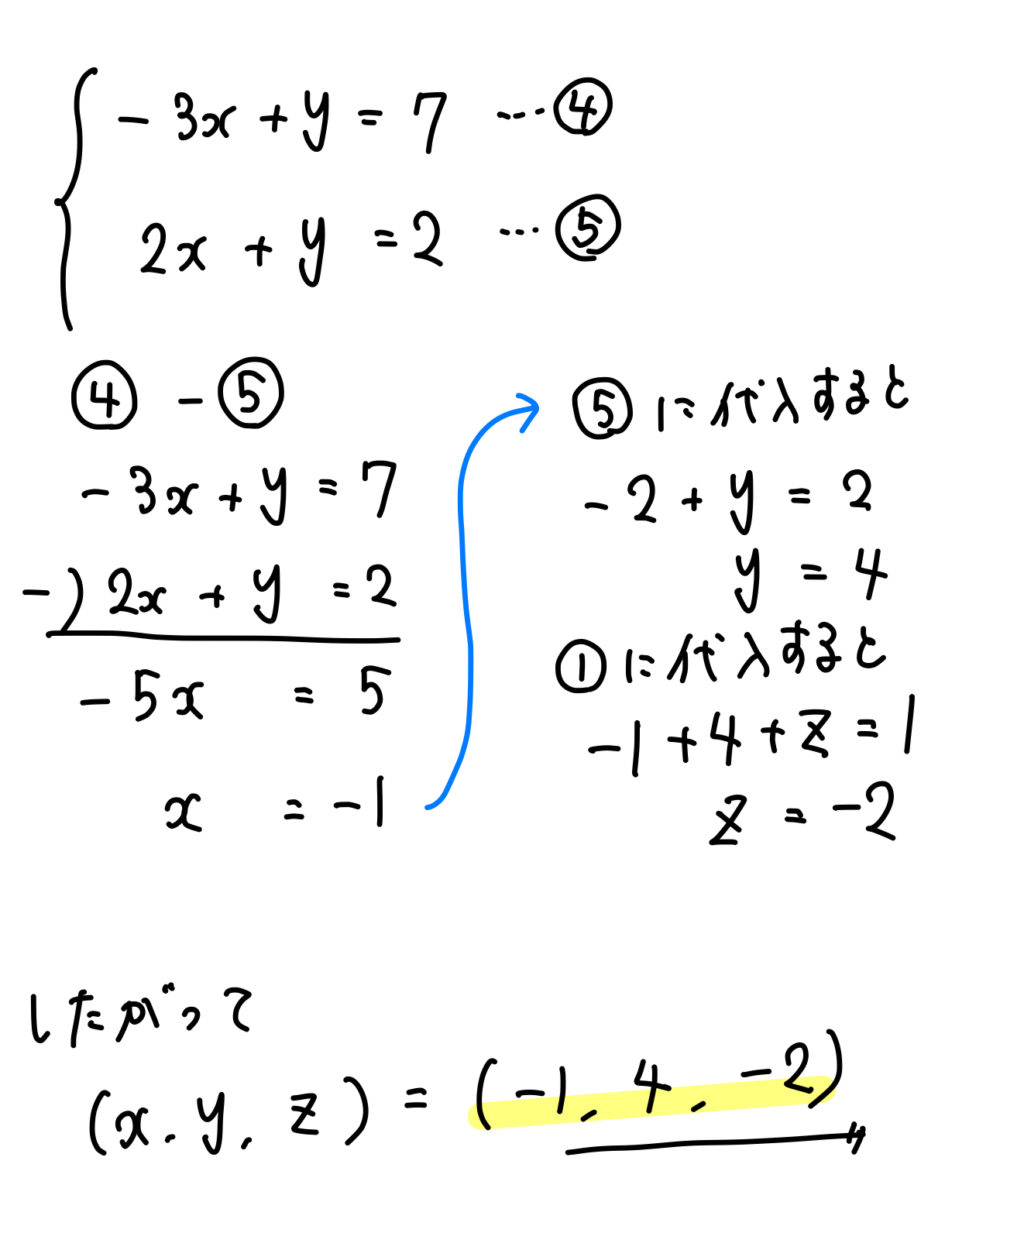 -3x+y=7 …④
2x+y=2 …⑤
④-⑤
-3x+y=7
-) 2x+y=2
-5x=5
x=-1
⑤に代入すると
-2+y=2
y=4
①に代入すると
-1+4+z=1
z=-2
したがって
(x,y,z)=(-1,4,-2)